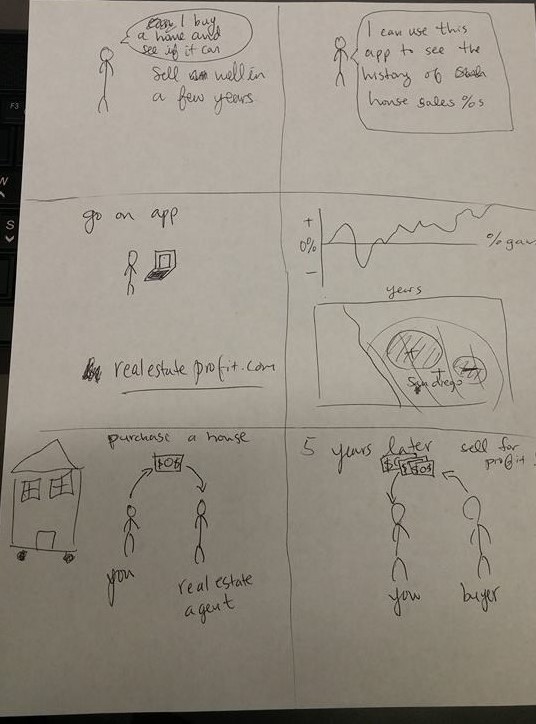 I buy
a home and
see if it can
sell well in
a few years
I can use this
app to see the
history of
house sales %s
go on app
realestateprofit.com
+
0%
-
% gain
years
+
-
San diego
purchase a house
$0$
you
real estate
agent
5 years later
sell for
profit!
$0$
you
buyer
F3
W
S